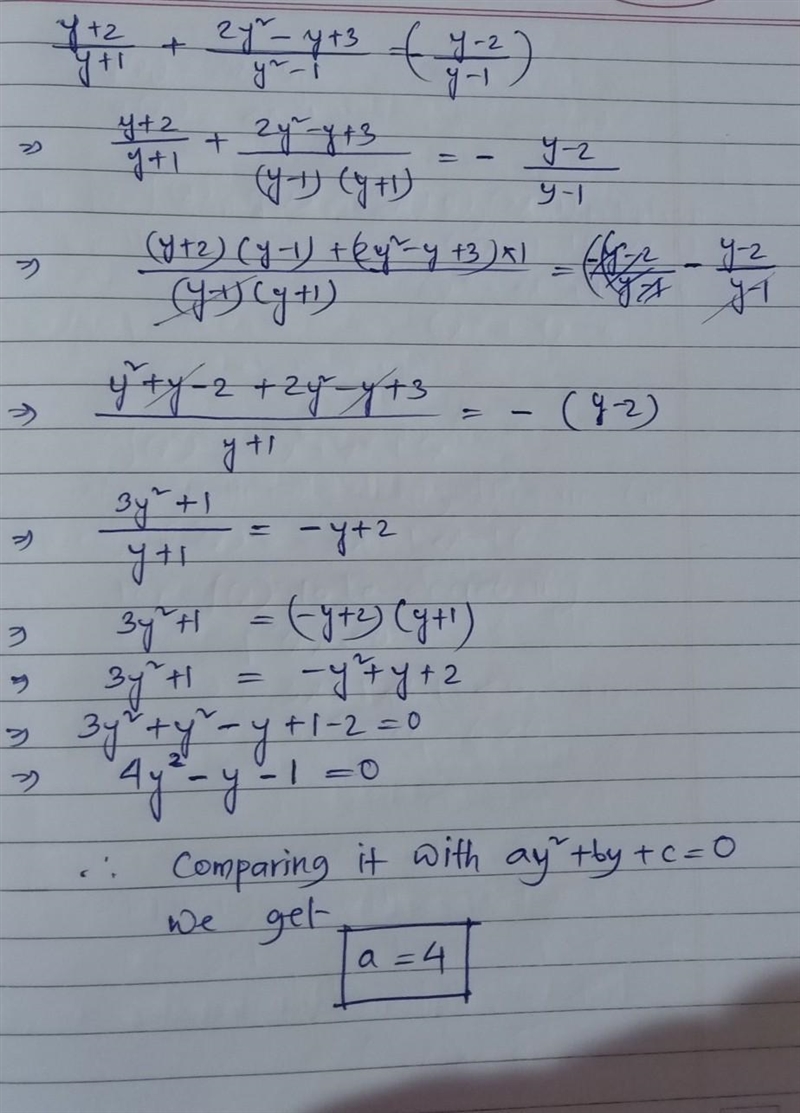 (y+2)/(y+1) + (2y²-y+3)/(y²-1) = (- (y-2)/(y-1))
⇒ (y+2)/(y+1) + (2y²-y+3)/((y-1)(y+1)) = - (y-2)/(y-1)
⇒ ((y+2)(y-1) + (2y²-y+3)×1)/((y-1)(y+1)) = - (y-2)/(y-1)
⇒ (y²+y-2+2y²-y+3)/(y+1) = - (y-2)
⇒ (3y²+1)/(y+1) = -y+2
⇒ 3y²+1 = (-y+2)(y+1)
⇒ 3y²+1 = -y²+y+2
⇒ 3y²+y²-y+1-2=0
⇒ 4y²-y-1=0
∴ Comparing it with ay²+by+c=0
we get
a=4